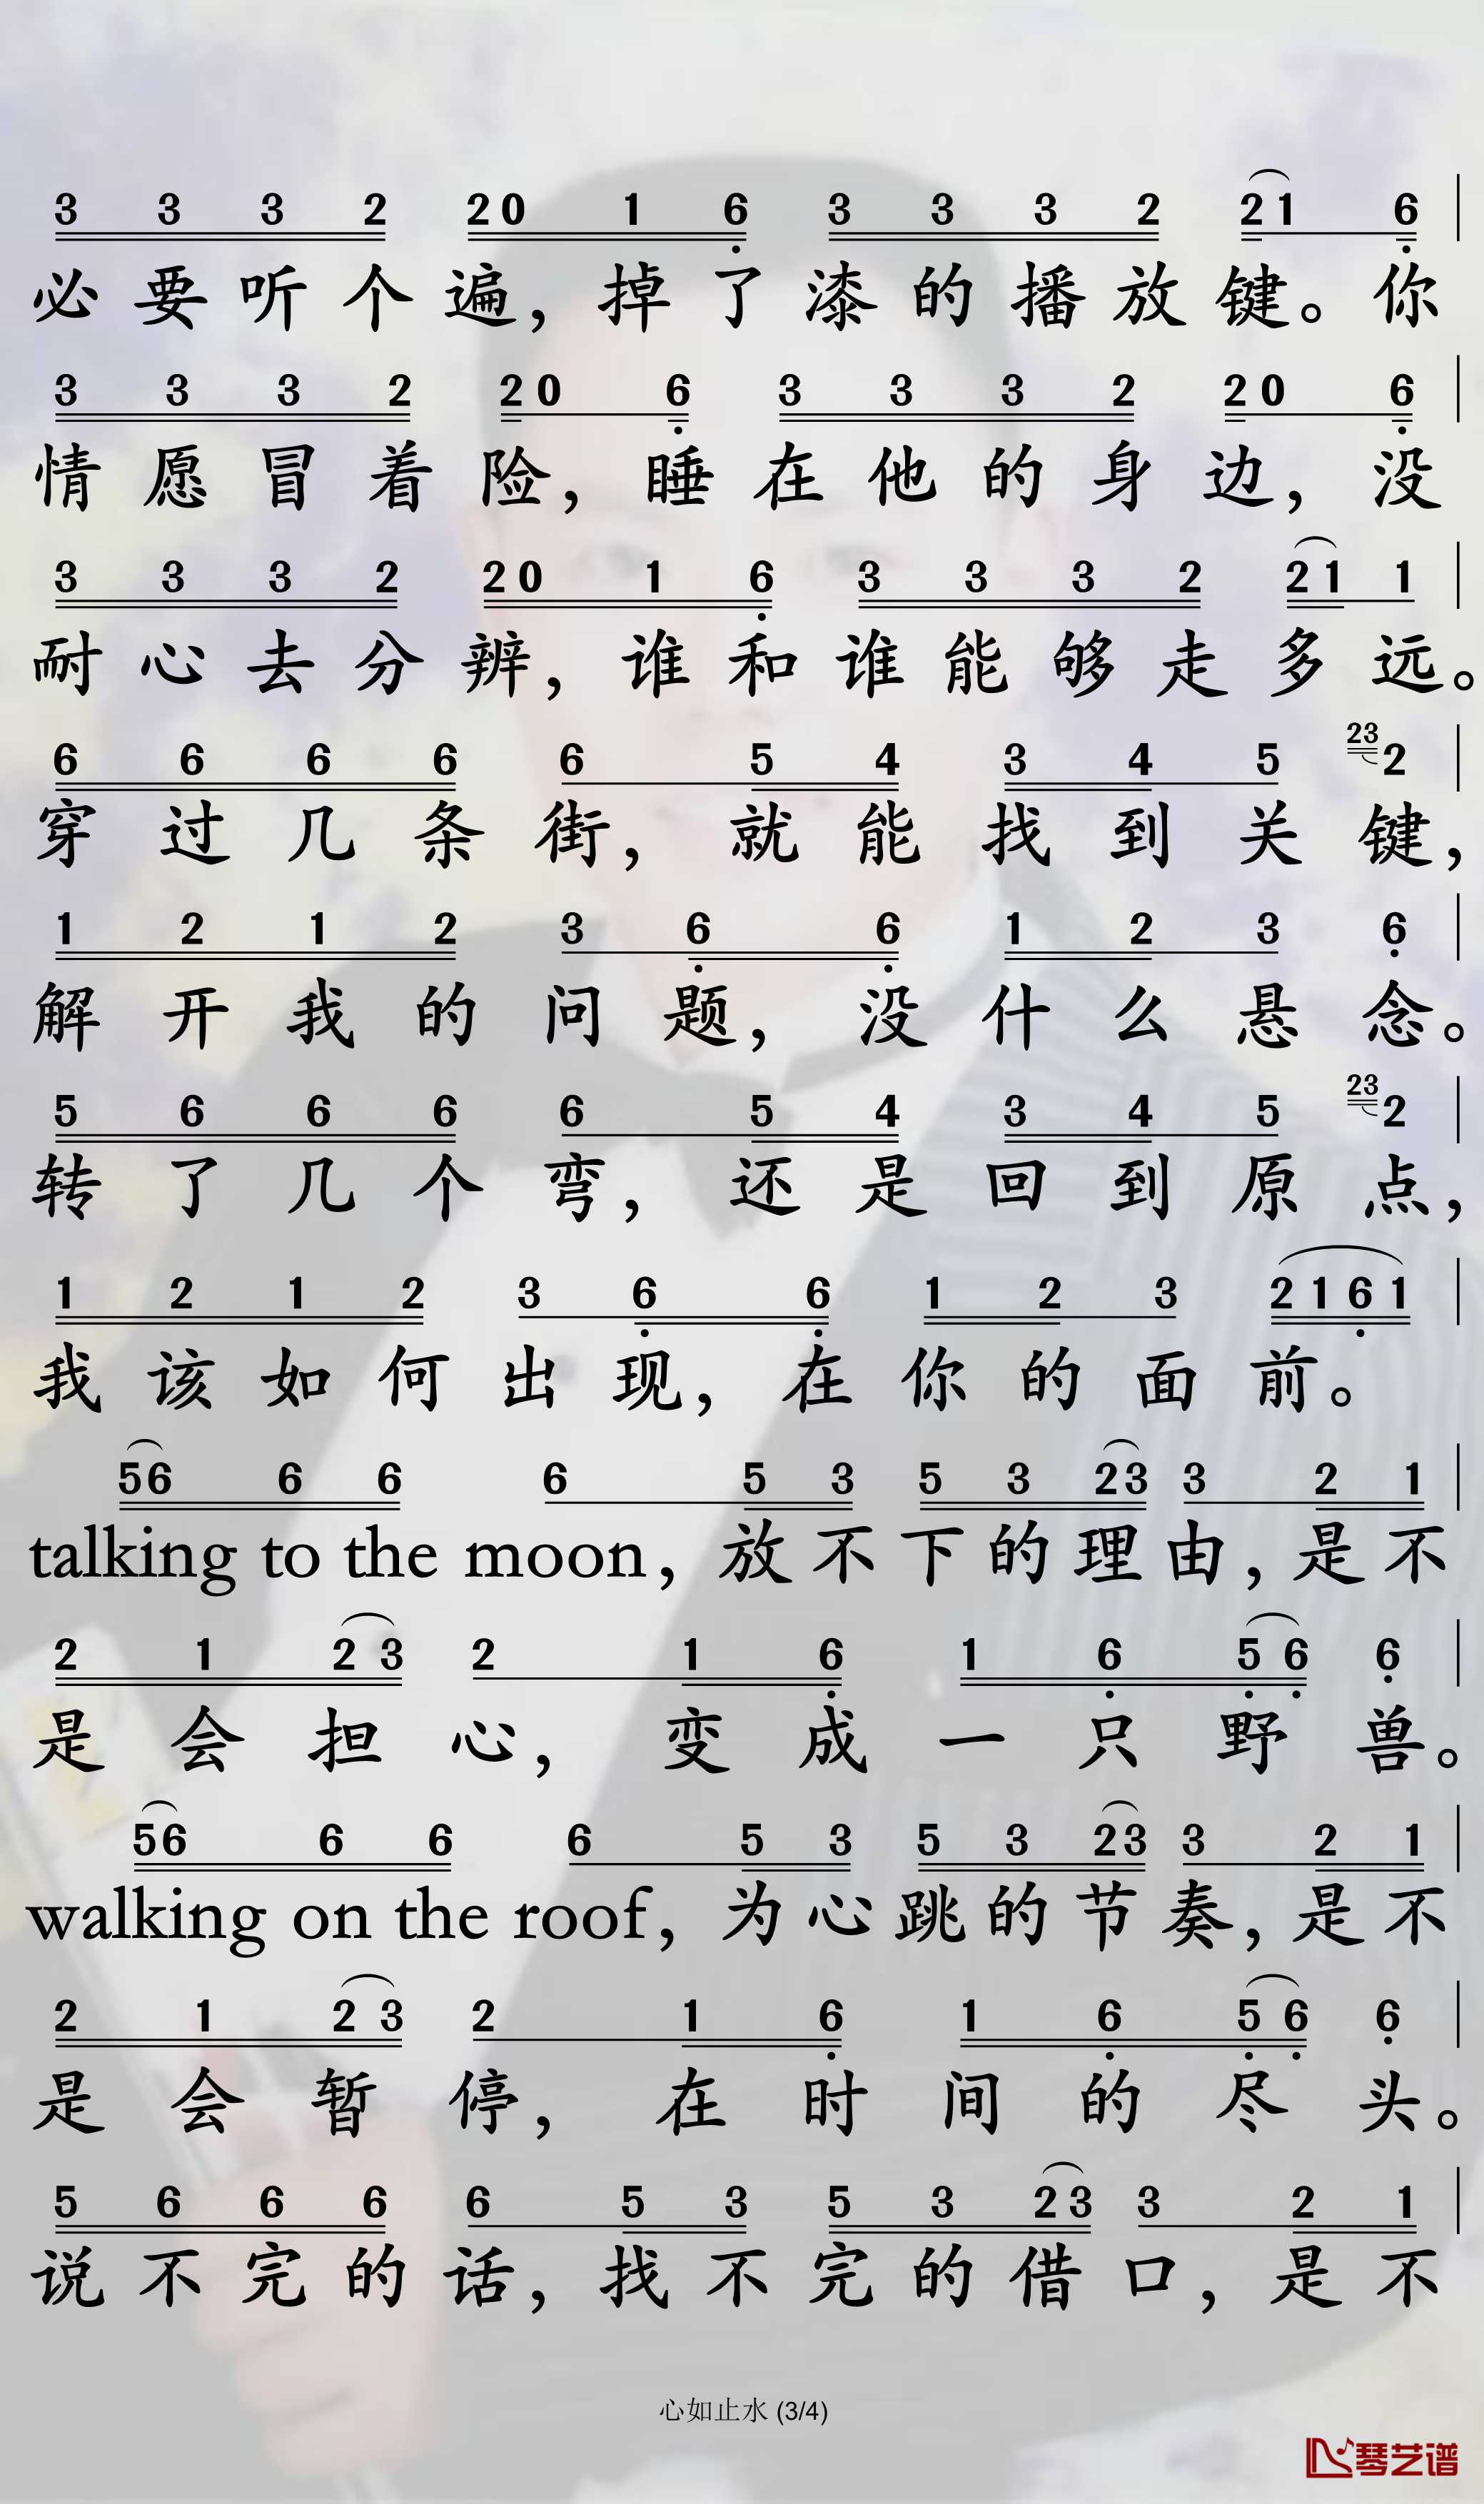 3 3 3 2 20 1 6 3 3 3 2 21 6
必要听个遍，掉了漆的播放键。你
3 3 3 2 20 6 3 3 3 2 20 6
情愿冒着险，睡在他的身边，没
3 3 3 2 20 1 6 3 3 3 2 21 1
耐心去分辨，谁和谁能够走多远。
6 6 6 6 6 5 4 3 4 5 23 2
穿过几条街，就能找到关键，
1 2 1 2 3 6 6 1 2 3 6
解开我的问题，没什么悬念。
5 6 6 6 6 5 4 3 4 5 23 2
转了几个弯，还是回到原点，
1 2 1 2 3 6 6 1 2 3 2161
我该如何出现，在你的面前。
56 6 6 6 5 3 5 3 23 3 2 1
talking to the moon，放不下的理由，是不
2 1 23 2 1 6 1 6 56 6
是会担心，变成一只野兽。
56 6 6 6 5 3 5 3 23 3 2 1
walking on the roof，为心跳的节奏，是不
2 1 23 2 1 6 1 6 56 6
是会暂停，在时间的尽头。
5 6 6 6 6 5 3 5 3 23 3 2 1
说不完的话，找不完的借口，是不
心如止水 (3/4)
琴艺谱